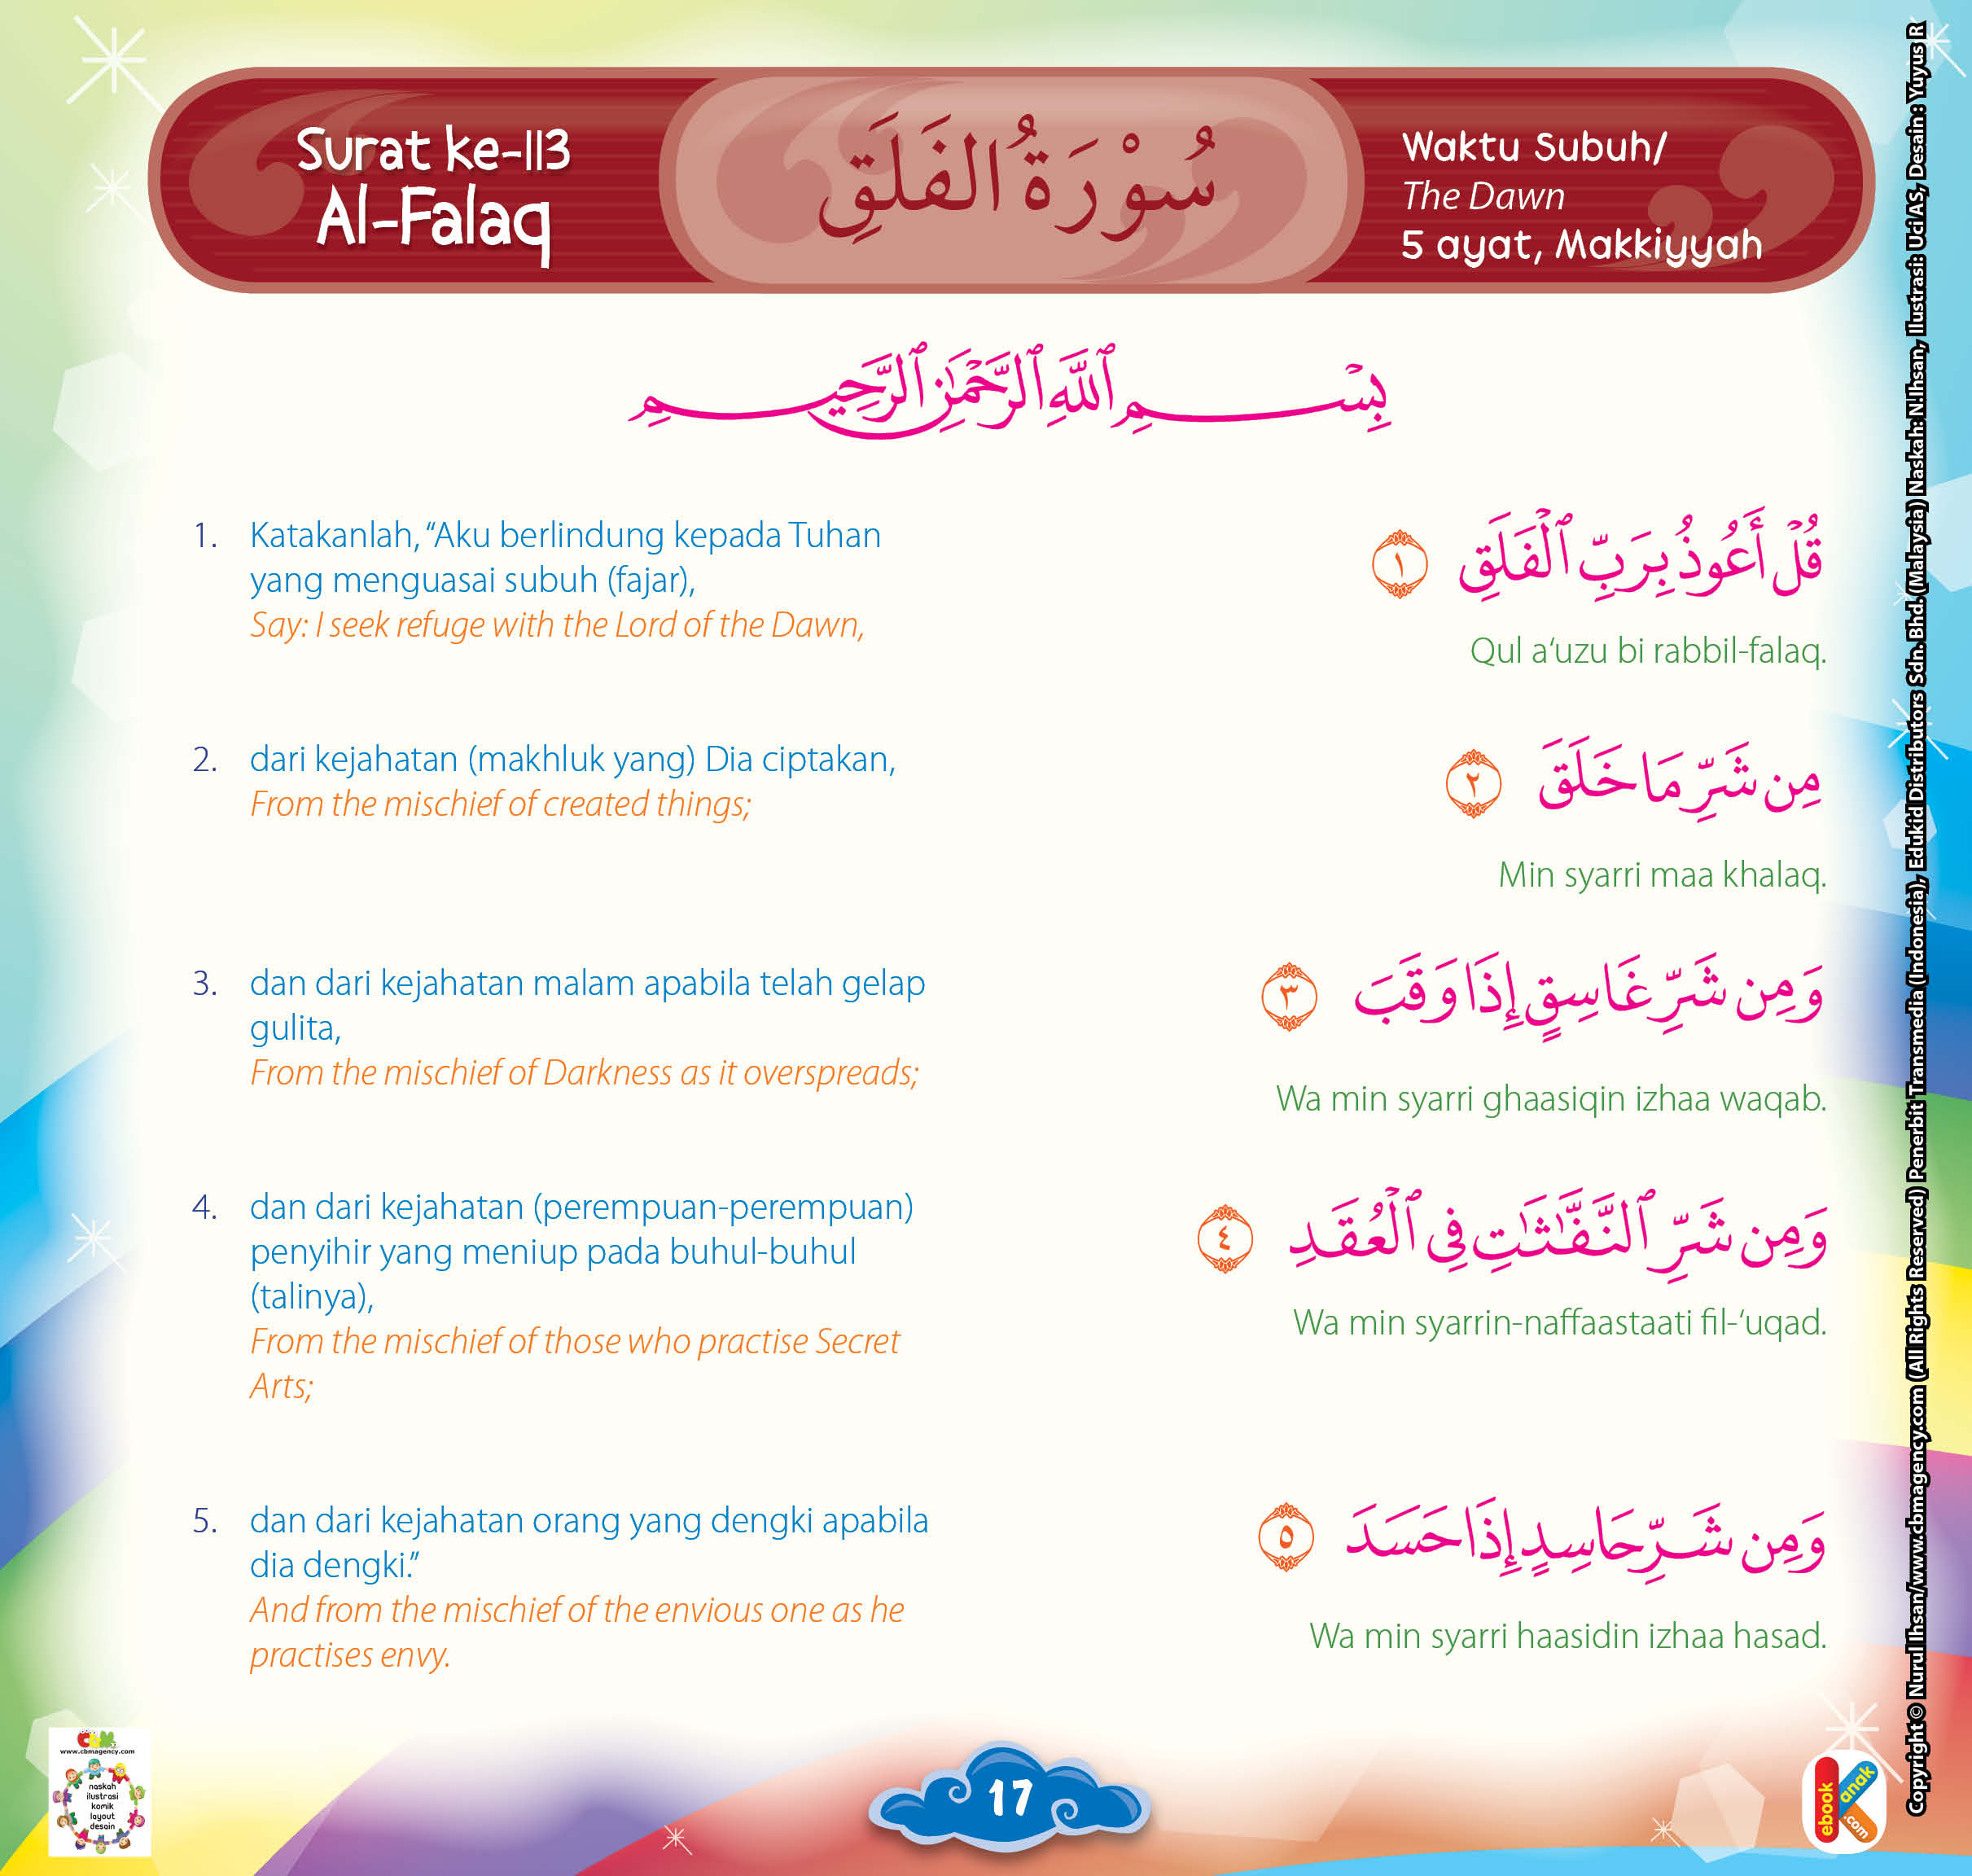 Surat ke-113
Al-Falaq
سُوْرَةُ الفَلَقِ
Waktu Subuh/
The Dawn
5 ayat, Makkiyyah
بِسْمِ ٱللَّهِ ٱلرَّحْمَٰنِ ٱلرَّحِيمِ
1. Katakanlah, “Aku berlindung kepada Tuhan
yang menguasai subuh (fajar),
Say: I seek refuge with the Lord of the Dawn,
قُلْ أَعُوذُ بِرَبِّ ٱلْفَلَقِ ١
Qul a‘uzu bi rabbil-falaq.
2. dari kejahatan (makhluk yang) Dia ciptakan,
From the mischief of created things;
مِن شَرِّ مَا خَلَقَ ٢
Min syarri maa khalaq.
3. dan dari kejahatan malam apabila telah gelap
gulita,
From the mischief of Darkness as it overspreads;
وَمِن شَرِّ غَاسِقٍ إِذَا وَقَبَ ٣
Wa min syarri ghaasiqin izhaa waqab.
4. dan dari kejahatan (perempuan-perempuan)
penyihir yang meniup pada buhul-buhul
(talinya),
From the mischief of those who practise Secret
Arts;
وَمِن شَرِّ ٱلنَّفَّٰثَٰتِ فِى ٱلْعُقَدِ ٤
Wa min syarrin-naffaastaati fil-‘uqad.
5. dan dari kejahatan orang yang dengki apabila
dia dengki.”
And from the mischief of the envious one as he
practises envy.
وَمِن شَرِّ حَاسِدٍ إِذَا حَسَدَ ٥
Wa min syarri haasidin izhaa hasad.
17
CBM
www.cbmagency.com
naskah
ilustrasi
komik
layout
desain
ebook
anak
.com
Copyright © Nurul Ihsan/www.cbmagency.com (All Rights Reserved) Penerbit Transmedia (Indonesia), Edukid Distributors Sdn. Bhd. (Malaysia) Naskah: N.Ihsan, Ilustrasi: Uci AS, Desain: Yuyus R